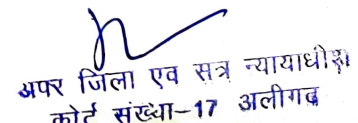 अपर जिला एव सत्र न्यायाधीश
कोर्ट संख्या-17 अलीगढ़